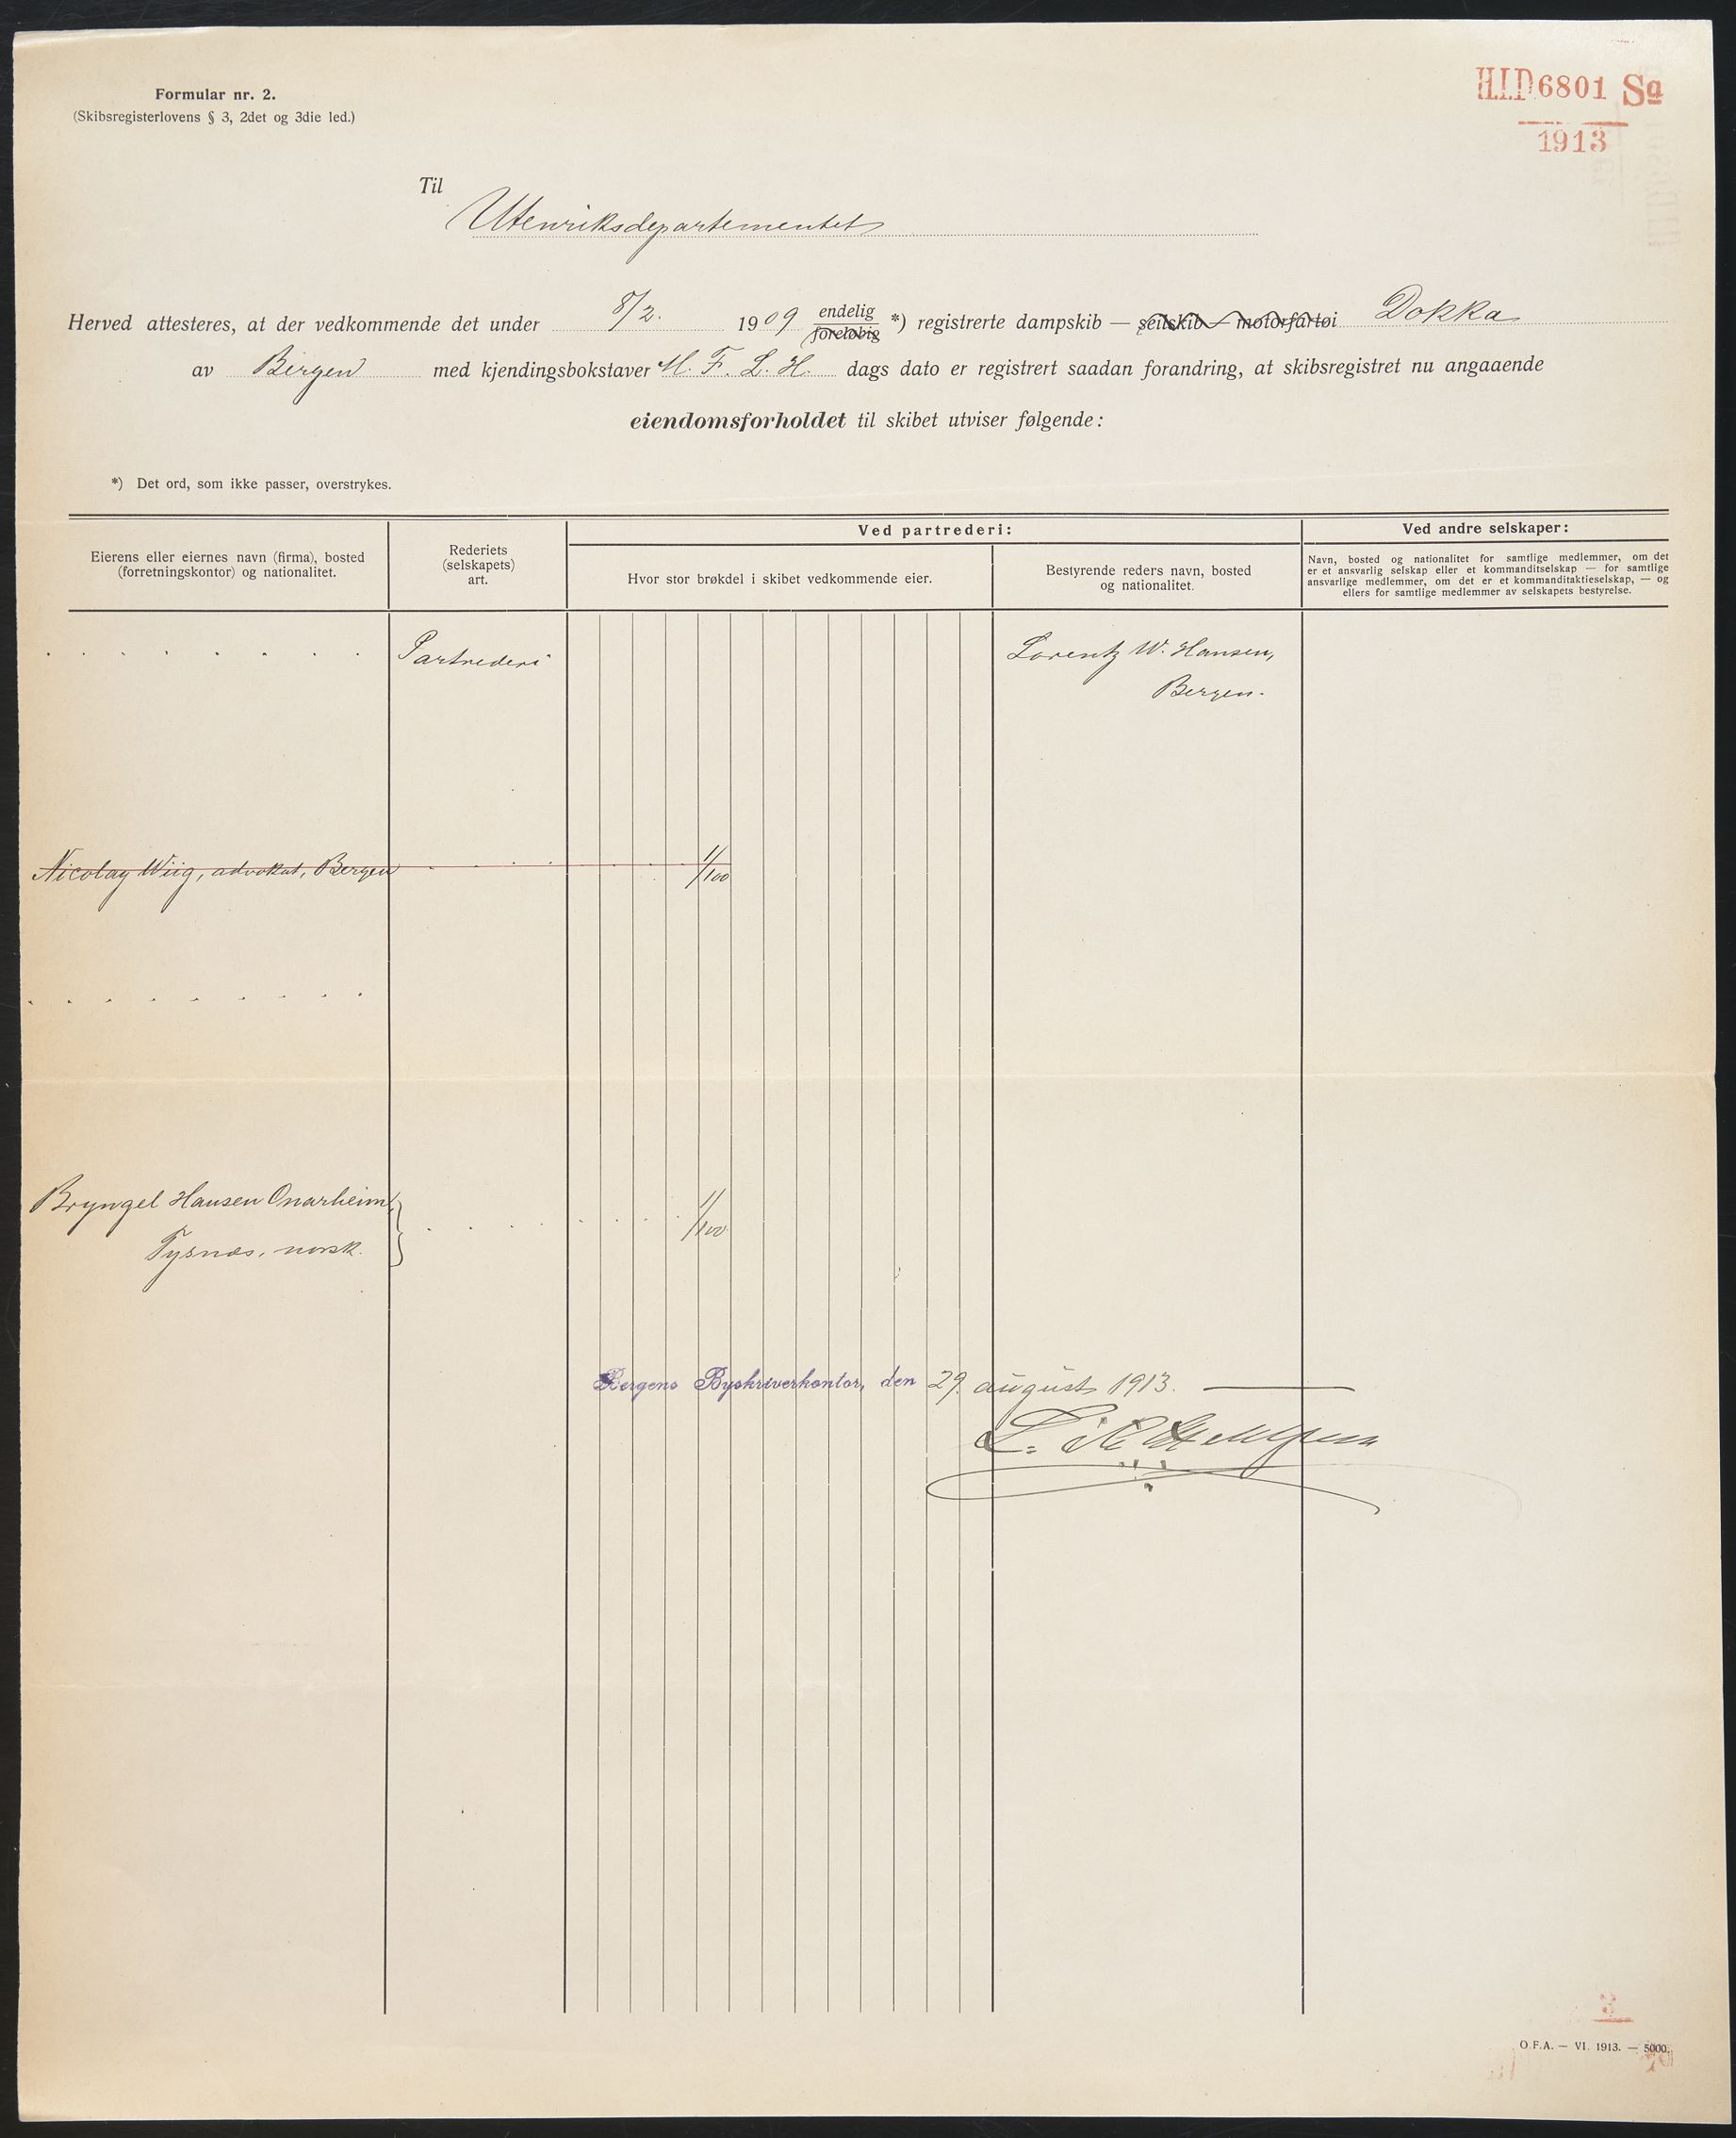 Formular nr. 2.
(Skibsregisterlovens § 3, 2det og 3die led.)
H.I.D 6801 Sa
1913
Til
Utenriksdepartementet
Herved attesteres, at der vedkommende det under 8/2. 1909 endelig foreløbig *) registrerte dampskib — seilskib — motorfartøi Dokka
av Bergen med kjendingsbokstaver M. F. L. H. dags dato er registrert saadan forandring, at skibsregistret nu angaaende
eiendomsforholdet til skibet utviser følgende:
*) Det ord, som ikke passer, overstrykes.
Eierens eller eiernes navn (firma), bosted
(forretningskontor) og nationalitet.
Rederiets
(selskapets)
art.
Ved partrederi:
Hvor stor brøkdel i skibet vedkommende eier.
Bestyrende reders navn, bosted
og nationalitet.
Ved andre selskaper:
Navn, bosted og nationalitet for samtlige medlemmer, om det
er et ansvarlig selskap eller et kommanditselskap — for samtlige
ansvarlige medlemmer, om det er et kommanditaktieselskap, — og
ellers for samtlige medlemmer av selskapets bestyrelse.
Partrederi
Lorentz W. Hansen,
Bergen.
Nicolay Wiig, advokat, Bergen 1/100
Bryngel Hansen Onarheim,
Tysnæs, norsk. 1/100
Bergens Byskriverkontor, den 29. august 1913.
3
O.F.A. — VI. 1913. — 5000.